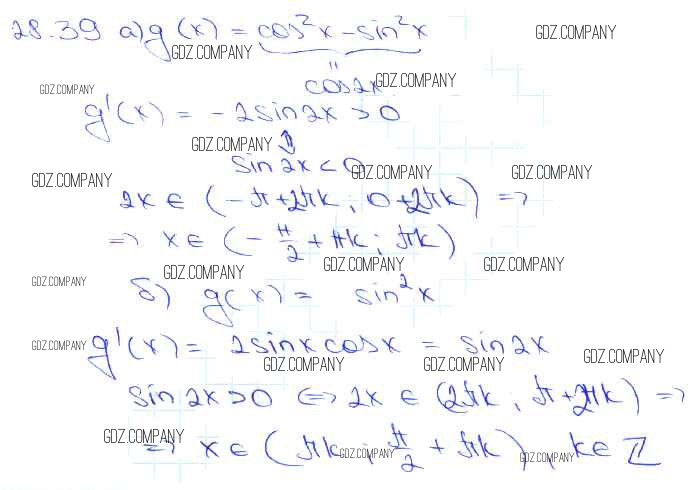 28.39 а) g(x) = cos²x - sin²x
GDZ.COMPANY GDZ.COMPANY
"
cos2x GDZ.COMPANY
GDZ.COMPANY
g'(x) = -2sin2x > 0
GDZ.COMPANY ⇕
sin2x < 0 GDZ.COMPANY GDZ.COMPANY
GDZ.COMPANY
2x ∈ (-π+2πk; 0+2πk) =>
=> x ∈ (-π/2 + πk; πk)
GDZ.COMPANY GDZ.COMPANY GDZ.COMPANY
GDZ.COMPANY
б) g(x) = sin²x
g'(x) = 2sinxcosx = sin2x
GDZ.COMPANY GDZ.COMPANY GDZ.COMPANY GDZ.COMPANY
sin2x>0 <=> 2x ∈ (2πk; π+2πk) =>
GDZ.COMPANY
=> x ∈ (πk; π/2 + πk), k ∈ Z
GDZ.COMPANY GDZ.COMPANY